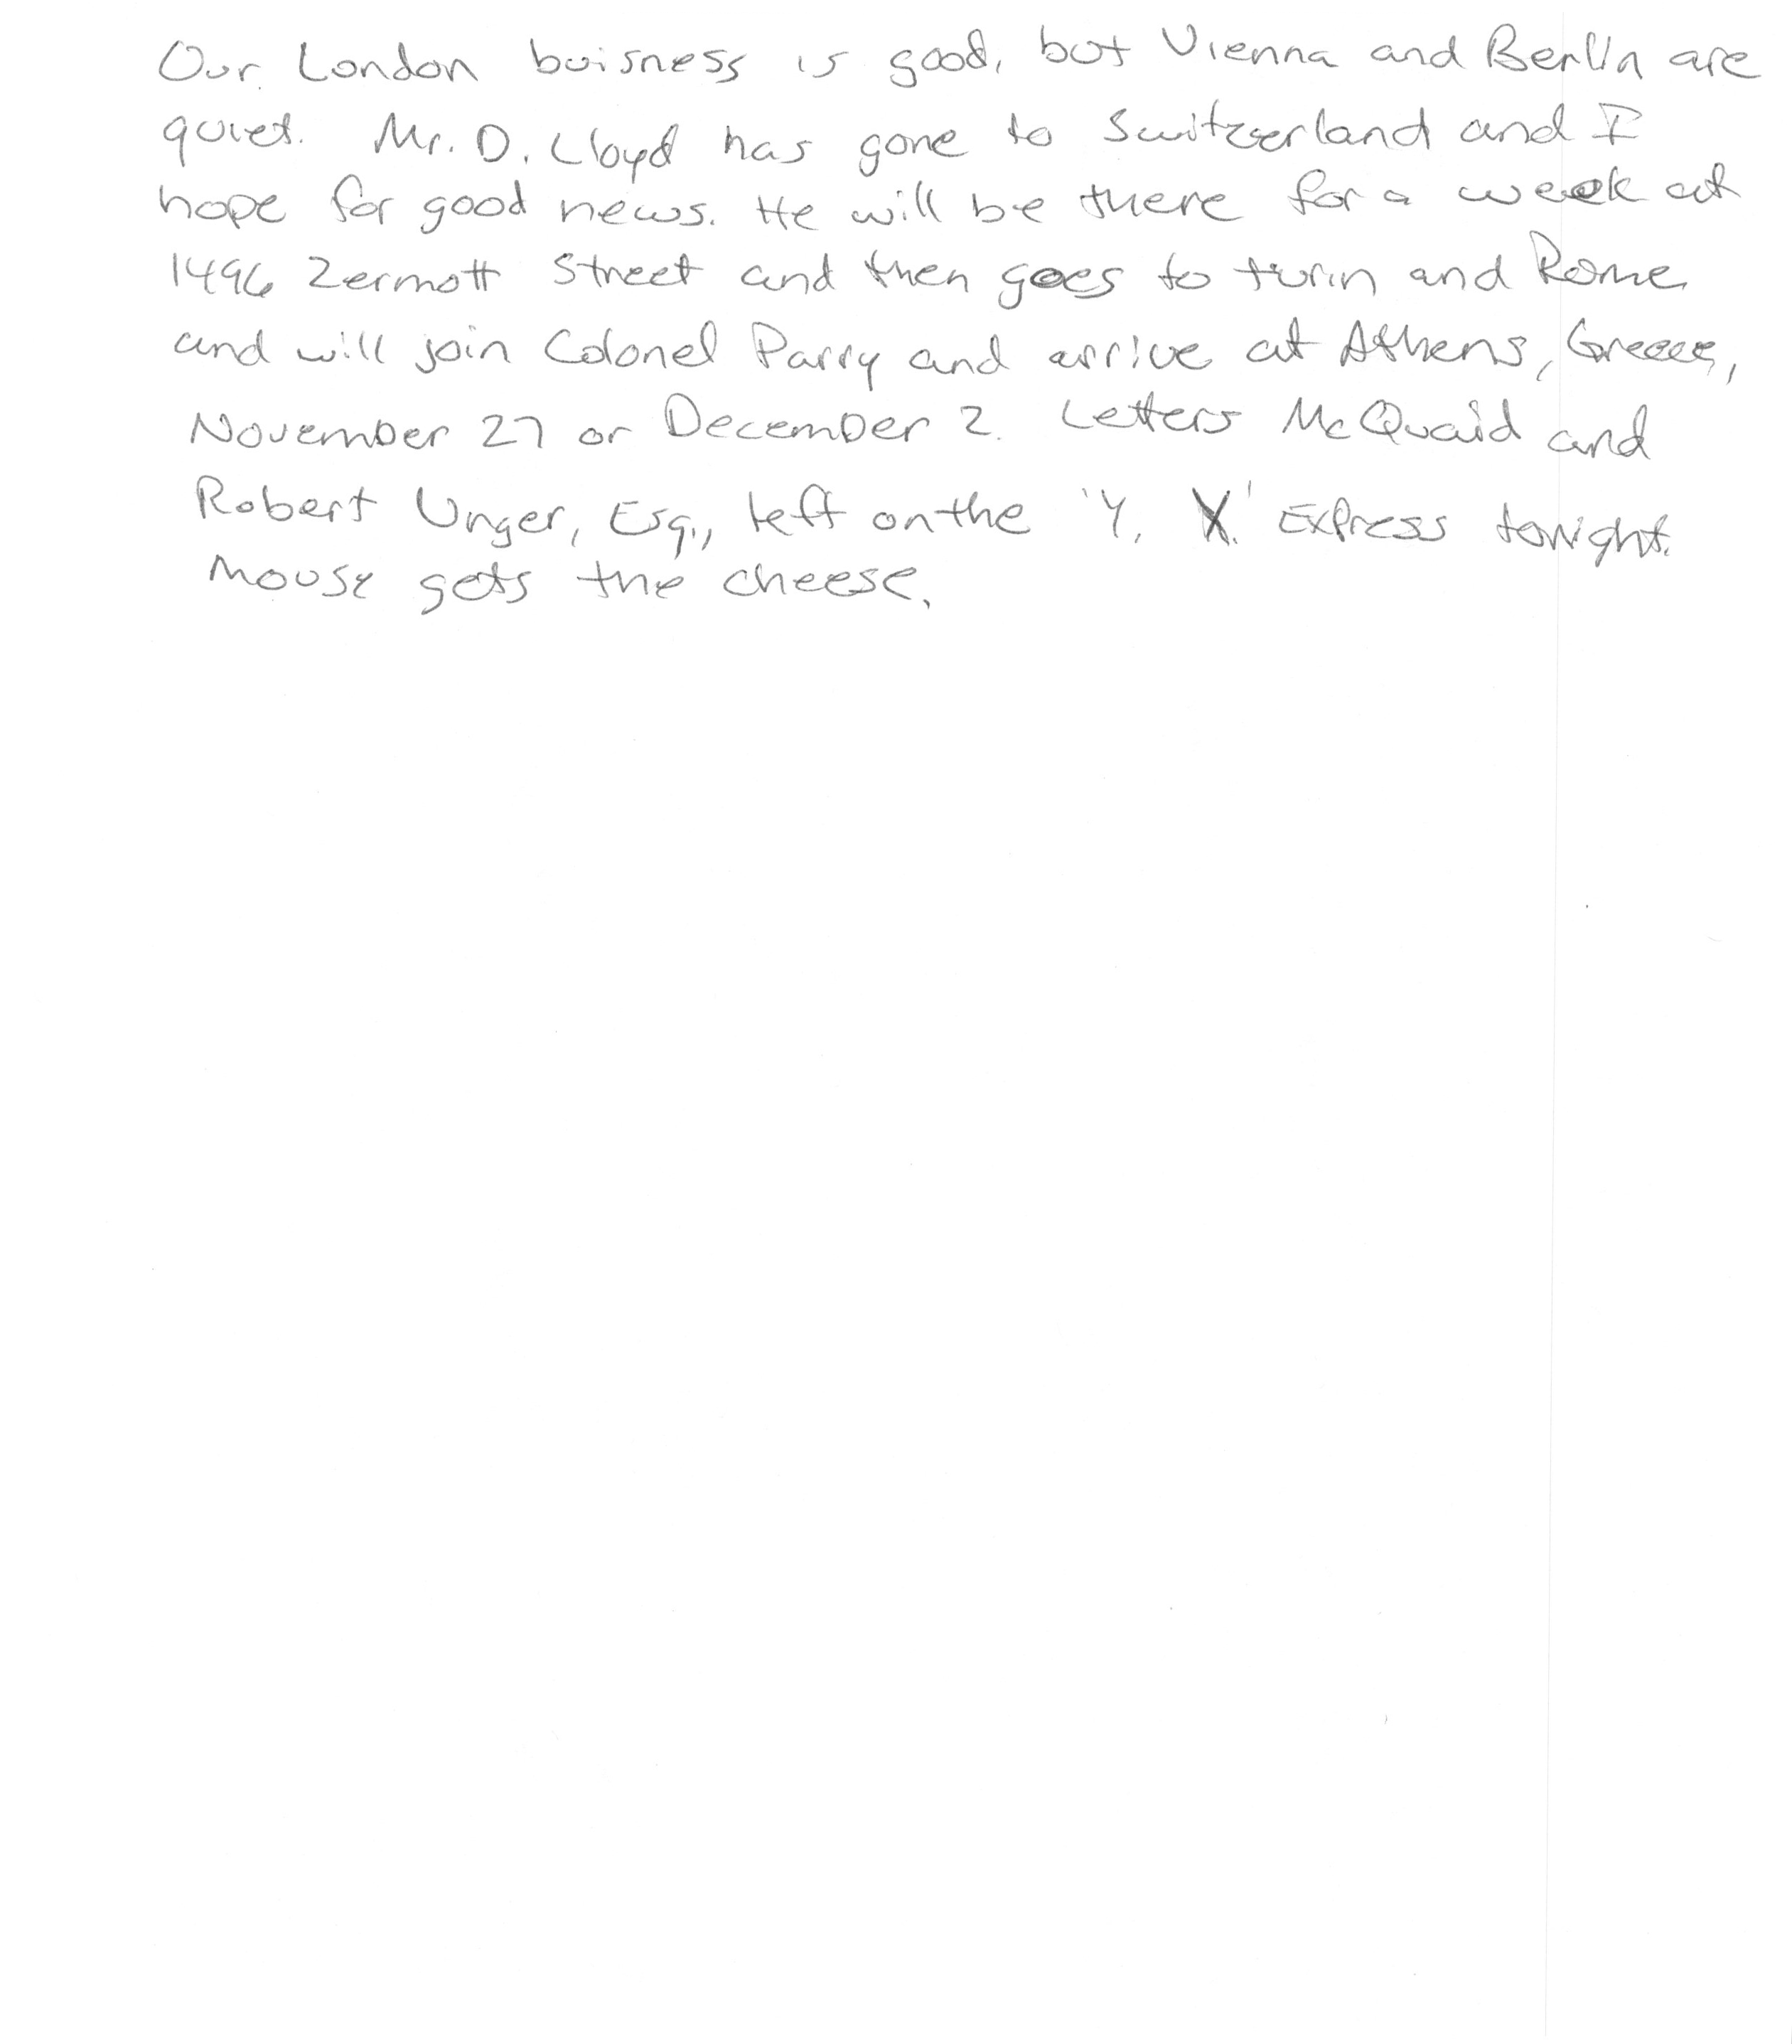 Our London buisness is good, but Vienna and Berlin are
quiet. Mr. D. Lloyd has gone to Switzerland and I
hope for good news. He will be there for a week at
1496 Zermott Street and then goes to turin and Rome
and will join Colonel Parry and arrive at Athens, Greece,
November 27 or December 2. Letters McQuaid and
Robert Unger, Esq., left on the 'Y. X.' Express tonight.
Mouse gets the cheese.